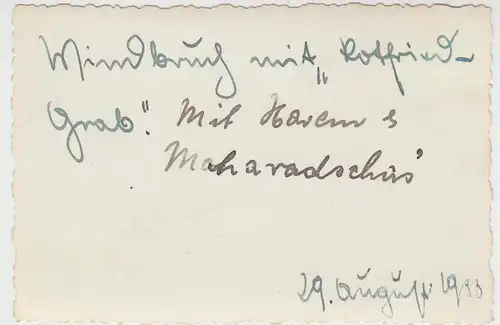 Windbruch mit „Rotfried-
Grab". Mit Harem s
Maharadschas'
29. August 1933